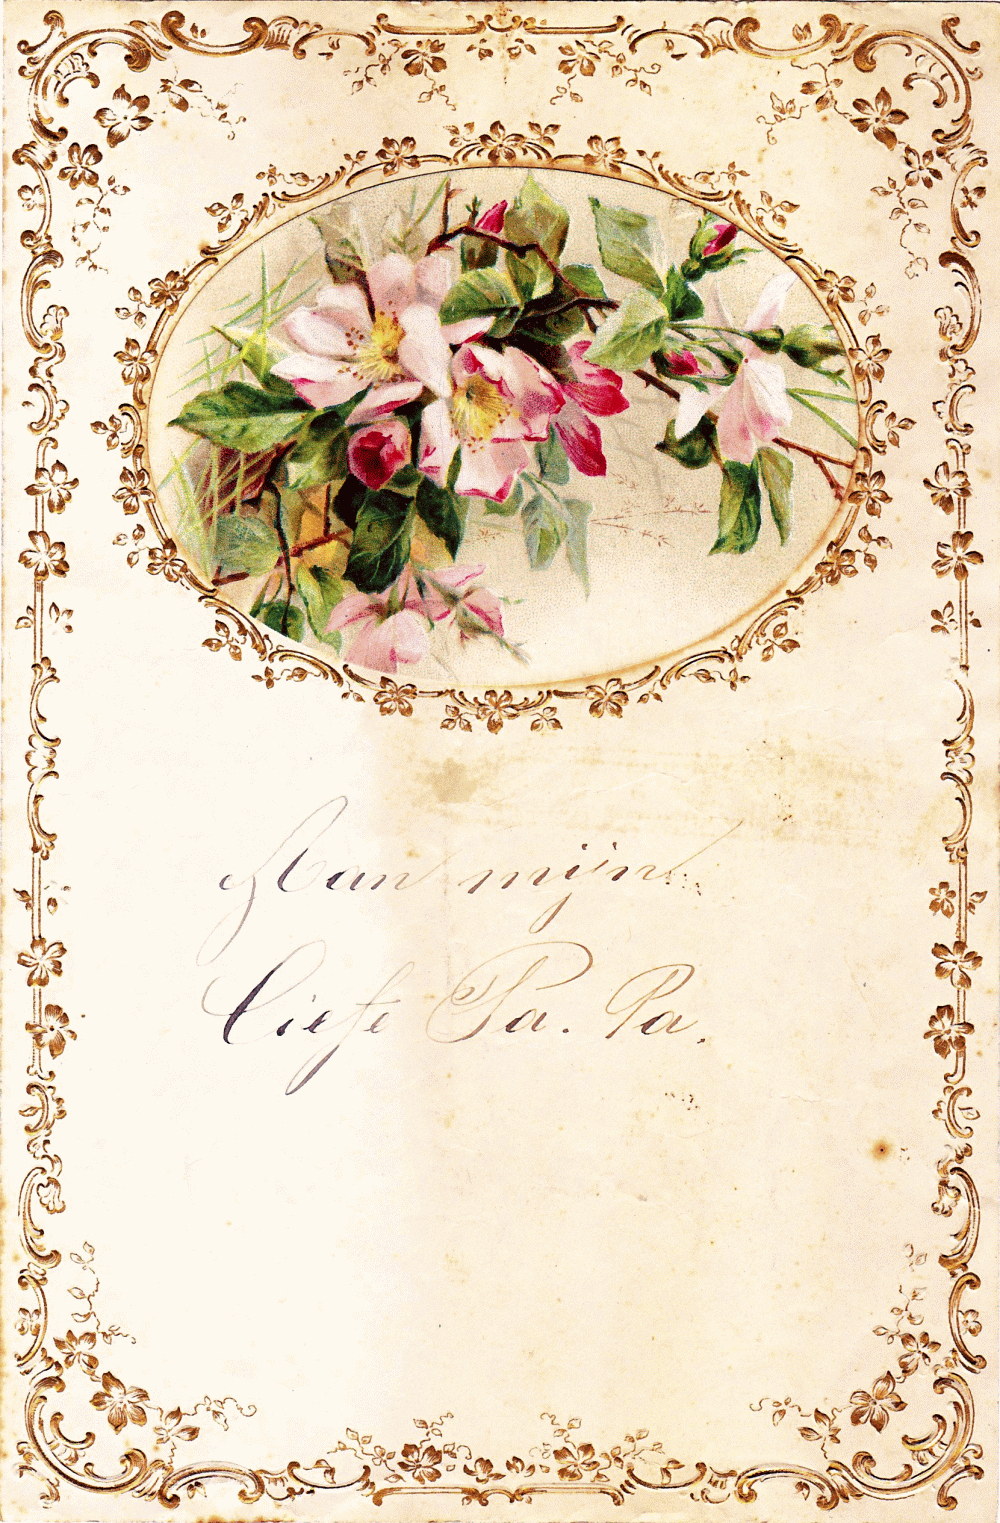 Aan mijn
Liefe Pa. Pa.